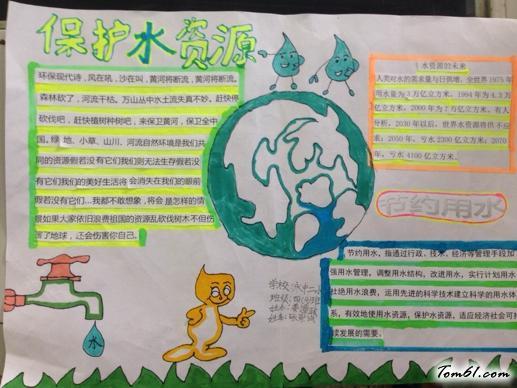 保护水资源
环保现代诗,风在吼,沙在叫,黄河将断流,黄河将断流。
森林砍了,河流干枯。万山丛中水土流失真不妙,赶快停
砍伐吧,赶快植树种树吧,来保卫黄河,保卫全中
国。绿地、小草、山川、河流自然环境是我们共
同的资源假若没有它们我们则无法生存假若没
有它们我们的美好生活将会消失在我们的眼前
假若没有它们...我都不敢想象,将会是怎样的情
景如果大家依旧浪费祖国的资源乱砍伐树木不但伤
害了地球,还会伤害你自己。
水资源的未来
人类对水的需求量与日俱增,全世界1975年
用水量为3万亿立方米。1994年为4.3万
亿立方米。2000年为7万亿立方米。有人
分析,2030年以后,世界水资源将供不应
求:2050年,亏水2300亿立方米;2070
年,亏水4100亿立方米。
节约用水
节约用水,指通过行政、技术、经济等管理手段加
强用水管理,调整用水结构,改进用水,实行计划用水
杜绝用水浪费,运用先进的科学技术建立科学的用水体
系,有效地使用水资源,保护水资源,适应经济社会可持
续发展的需要。
学校:
班级:
姓名:
水
Tom61.com